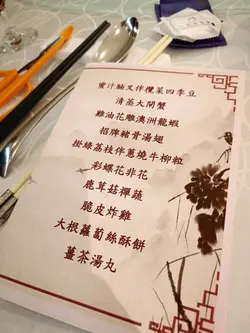 蜜汁腩叉伴欖菜四季豆
清蒸大閘蟹
雞油花雕澳洲龍蝦
招牌豬骨湯翅
掛綠荔枝伴蔥燒牛柳粒
彩蝶花非花
鹿茸菇彈蔬
脆皮炸雞
大根蘿蔔絲酥餅
薑茶湯丸